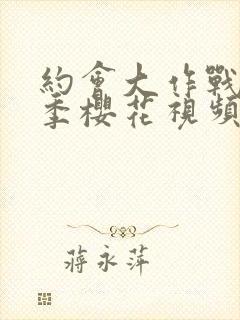 約會大作戰
季櫻花視頻
蔣永萍